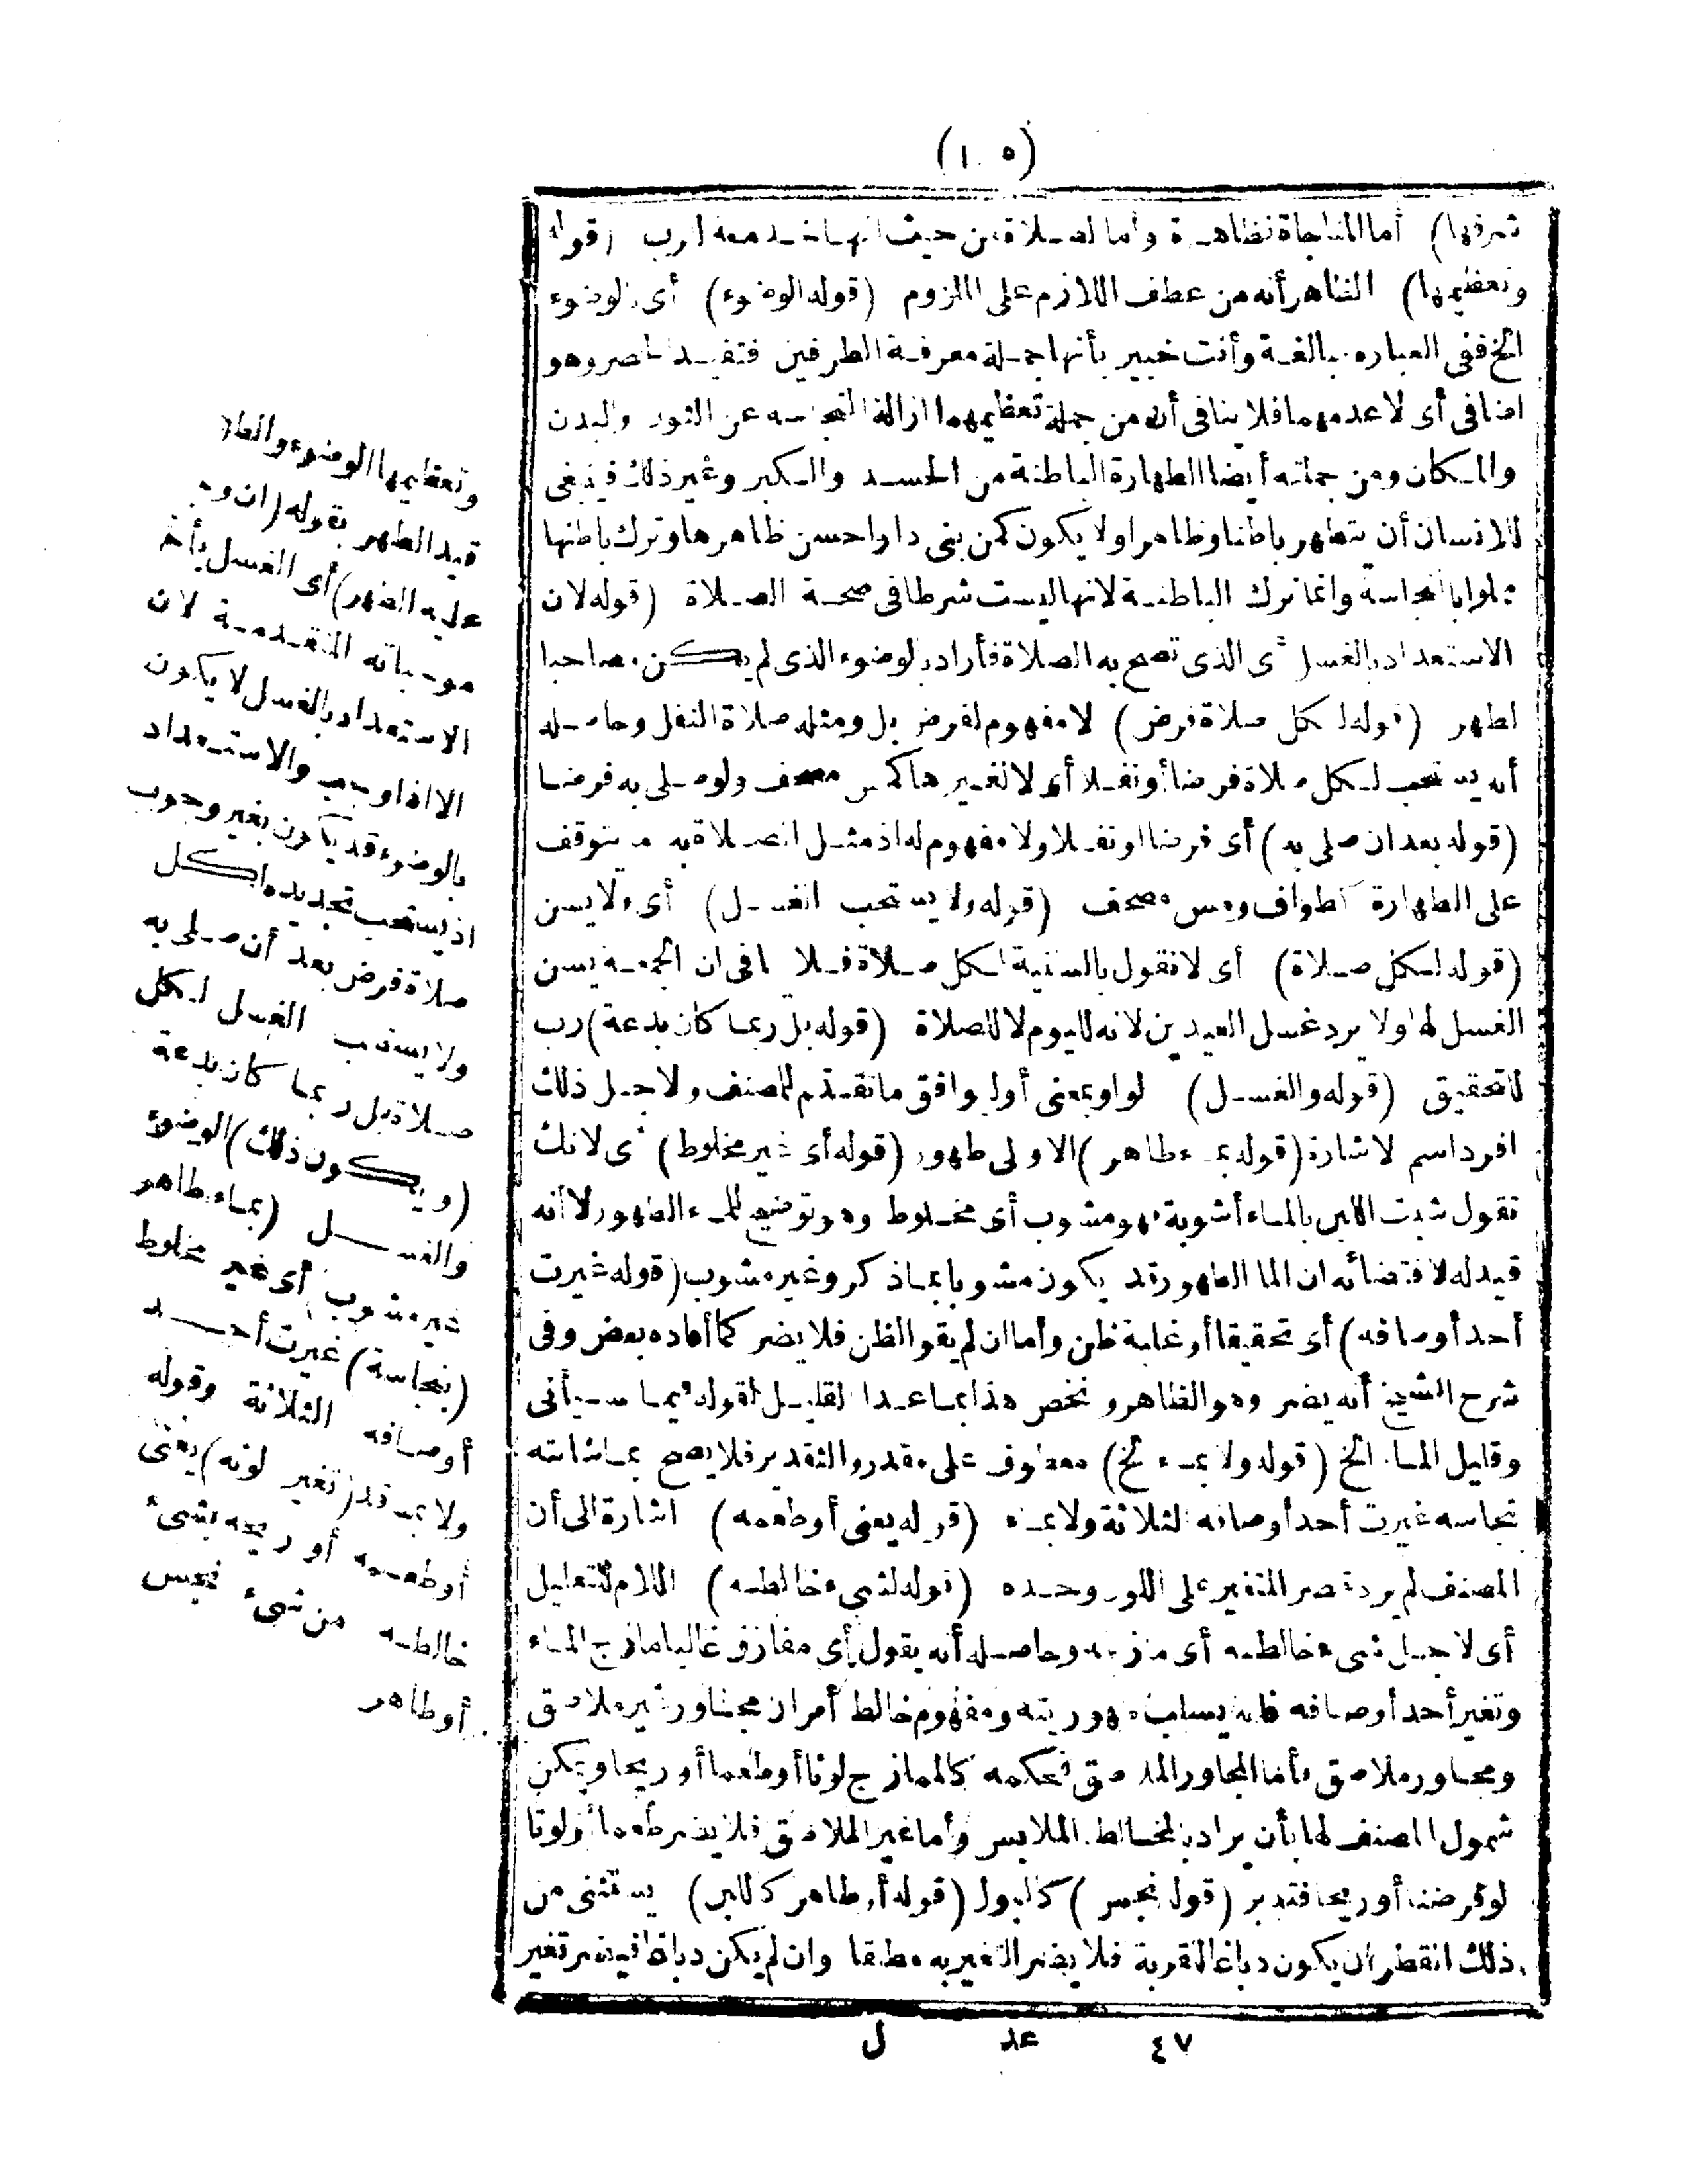 (١٠٥)
شرفها) أما المناجاة فظاهرة وأما الصلاة من حيث انها خدمة الرب (قوله
وتعظيمها) الظاهر أنه من عطف اللازم على الملزوم (قوله الوضوء) أى الوضوء
الخ ففى العباره مبالغة وأنت خبير بأنها جملة معرفة الطرفين فتفيد الحصر وهو
اضافى أى لا عدمهما فلا ينافى أن من جملة تعظيمهما ازالة النجاسه عن الثوب والبدن
والمكان ومن جملته أيضا الطهارة الباطنة من الحسد والكبر وغير ذلك فينبغى
للانسان أن يتطهر باطنا وظاهرا ولا يكون كمن بنى دارا حسن ظاهرها وترك باطنها
مملوا بالنجاسة وانما ترك الباطنة لانها ليست شرطا فى صحة الصلاة (قوله لان
الاستعداد بالغسل أى الذى تصح به الصلاة فأراد بالوضوء الذى لم يكن مصاحبا
لطهر (قوله لكل صلاة فرض) لا مفهوم لفرض بل ومثله صلاة النفل وحاصله
أنه يستحب لكل صلاة فرضا أو نفلا أى لا لغيرها كمس مصحف ولو صلى به فرضا
(قوله بعد ان صلى به) أى فرضا او نفلا ولا مفهوم له اذ مثل الصلاة به ما يتوقف
على الطهارة كطواف ومس مصحف (قوله ولا يستحب الغسل) أى ولا يسن
(قوله لكل صلاة) أى لا نقول بالسنية لكل صلاة فلا ينافى ان الجمعة يسن
الغسل لها ولا يرد غسل العيدين لانه لليوم لا للصلاة (قوله بل ربما كان بدعة) رب
للتحقيق (قوله والغسل) الواو بمعنى أو ليوافق ما تقدم للمصنف ولاجل ذلك
افرد اسم الاشارة (قوله بماء طاهر) الاولى طهور (قوله أى غير مخلوط) أى لانك
تقول شبت اللبن بالماء أشوبه فهو مشوب أى مخلوط وهو توضيح للماء الطهور لا أنه
قيد له لاقتضائه ان الما الطهور قد يكون مشوبا بما ذكر وغير مشوب (قوله غيرت
أحد أوصافه) أى تحقيقا أو غلبة ظن وأما ان لم يقو الظن فلا يضر كما أفاده بعض وفى
شرح الشيخ أنه يضر وهو الظاهر ونخص هذا بما عدا القليل لقوله فيما سيأتى
وقليل الماء الخ (قوله ولا بماء الخ) معطوف على مقدر والتقدير فلا يصح بما شابته
نجاسه غيرت أحد أوصافه الثلاثة ولا بماء (قوله يعنى أو طعمه) اشارة الى أن
المصنف لم يرد قصر التغير على اللون وحده (قوله لشىء خالطه) اللام للتعليل
أى لاجل شىء خالطه أى مازجه وحاصله أنه يقول أى مفارق غالبا مازج الماء
وتغير أحد أوصافه فانه يسلب طهوريته ومفهوم خالط أمران مجاور غير ملاصق
ومجاور ملاصق فأما المجاور الملاصق فحكمه كالممازج لونا أو طعما أو ريحا ويمكن
شمول المصنف لها بأن يراد بالمخالط الملابس وأما غير الملاصق فلا يضر طعما أو لونا
لو فرضنا أو ريحا فتدبر (قول نجس) كالبول (قوله أو طاهر كاللبن) يستثنى من
ذلك القطران يكون دباغا للقربة فلا يضر التغير به مطلقا وان لم يكن دباغا فيضر تغير
٤٧ عد ل
وتعظيمها الوضوء والطهر
قيد الطهر بقوله (ان وجب
عليه الطهر) أى الغسل بأحد
موجباته المتقدمة لان
الاستعداد بالغسل لا يكون
الا اذا وجب والاستعداد
بالوضوء قد يكون بغير وجوب
اذ يستحب تجديده لكل
صلاة فرض بعد أن صلى به
ولا يستحب الغسل لكل
صلاة بل ربما كان بدعة
(ويكون ذلك) الوضوء
والغسل (بماء طاهر
غير مشوب) أى غير مخلوط
(بنجاسة) غيرت أحد
أوصافه الثلاثة وقوله
ولا بماء قد (تغير لونه) يعنى
أو طعمه أو ريحه بشىء
خالطه من شىء نجس
أو طاهر